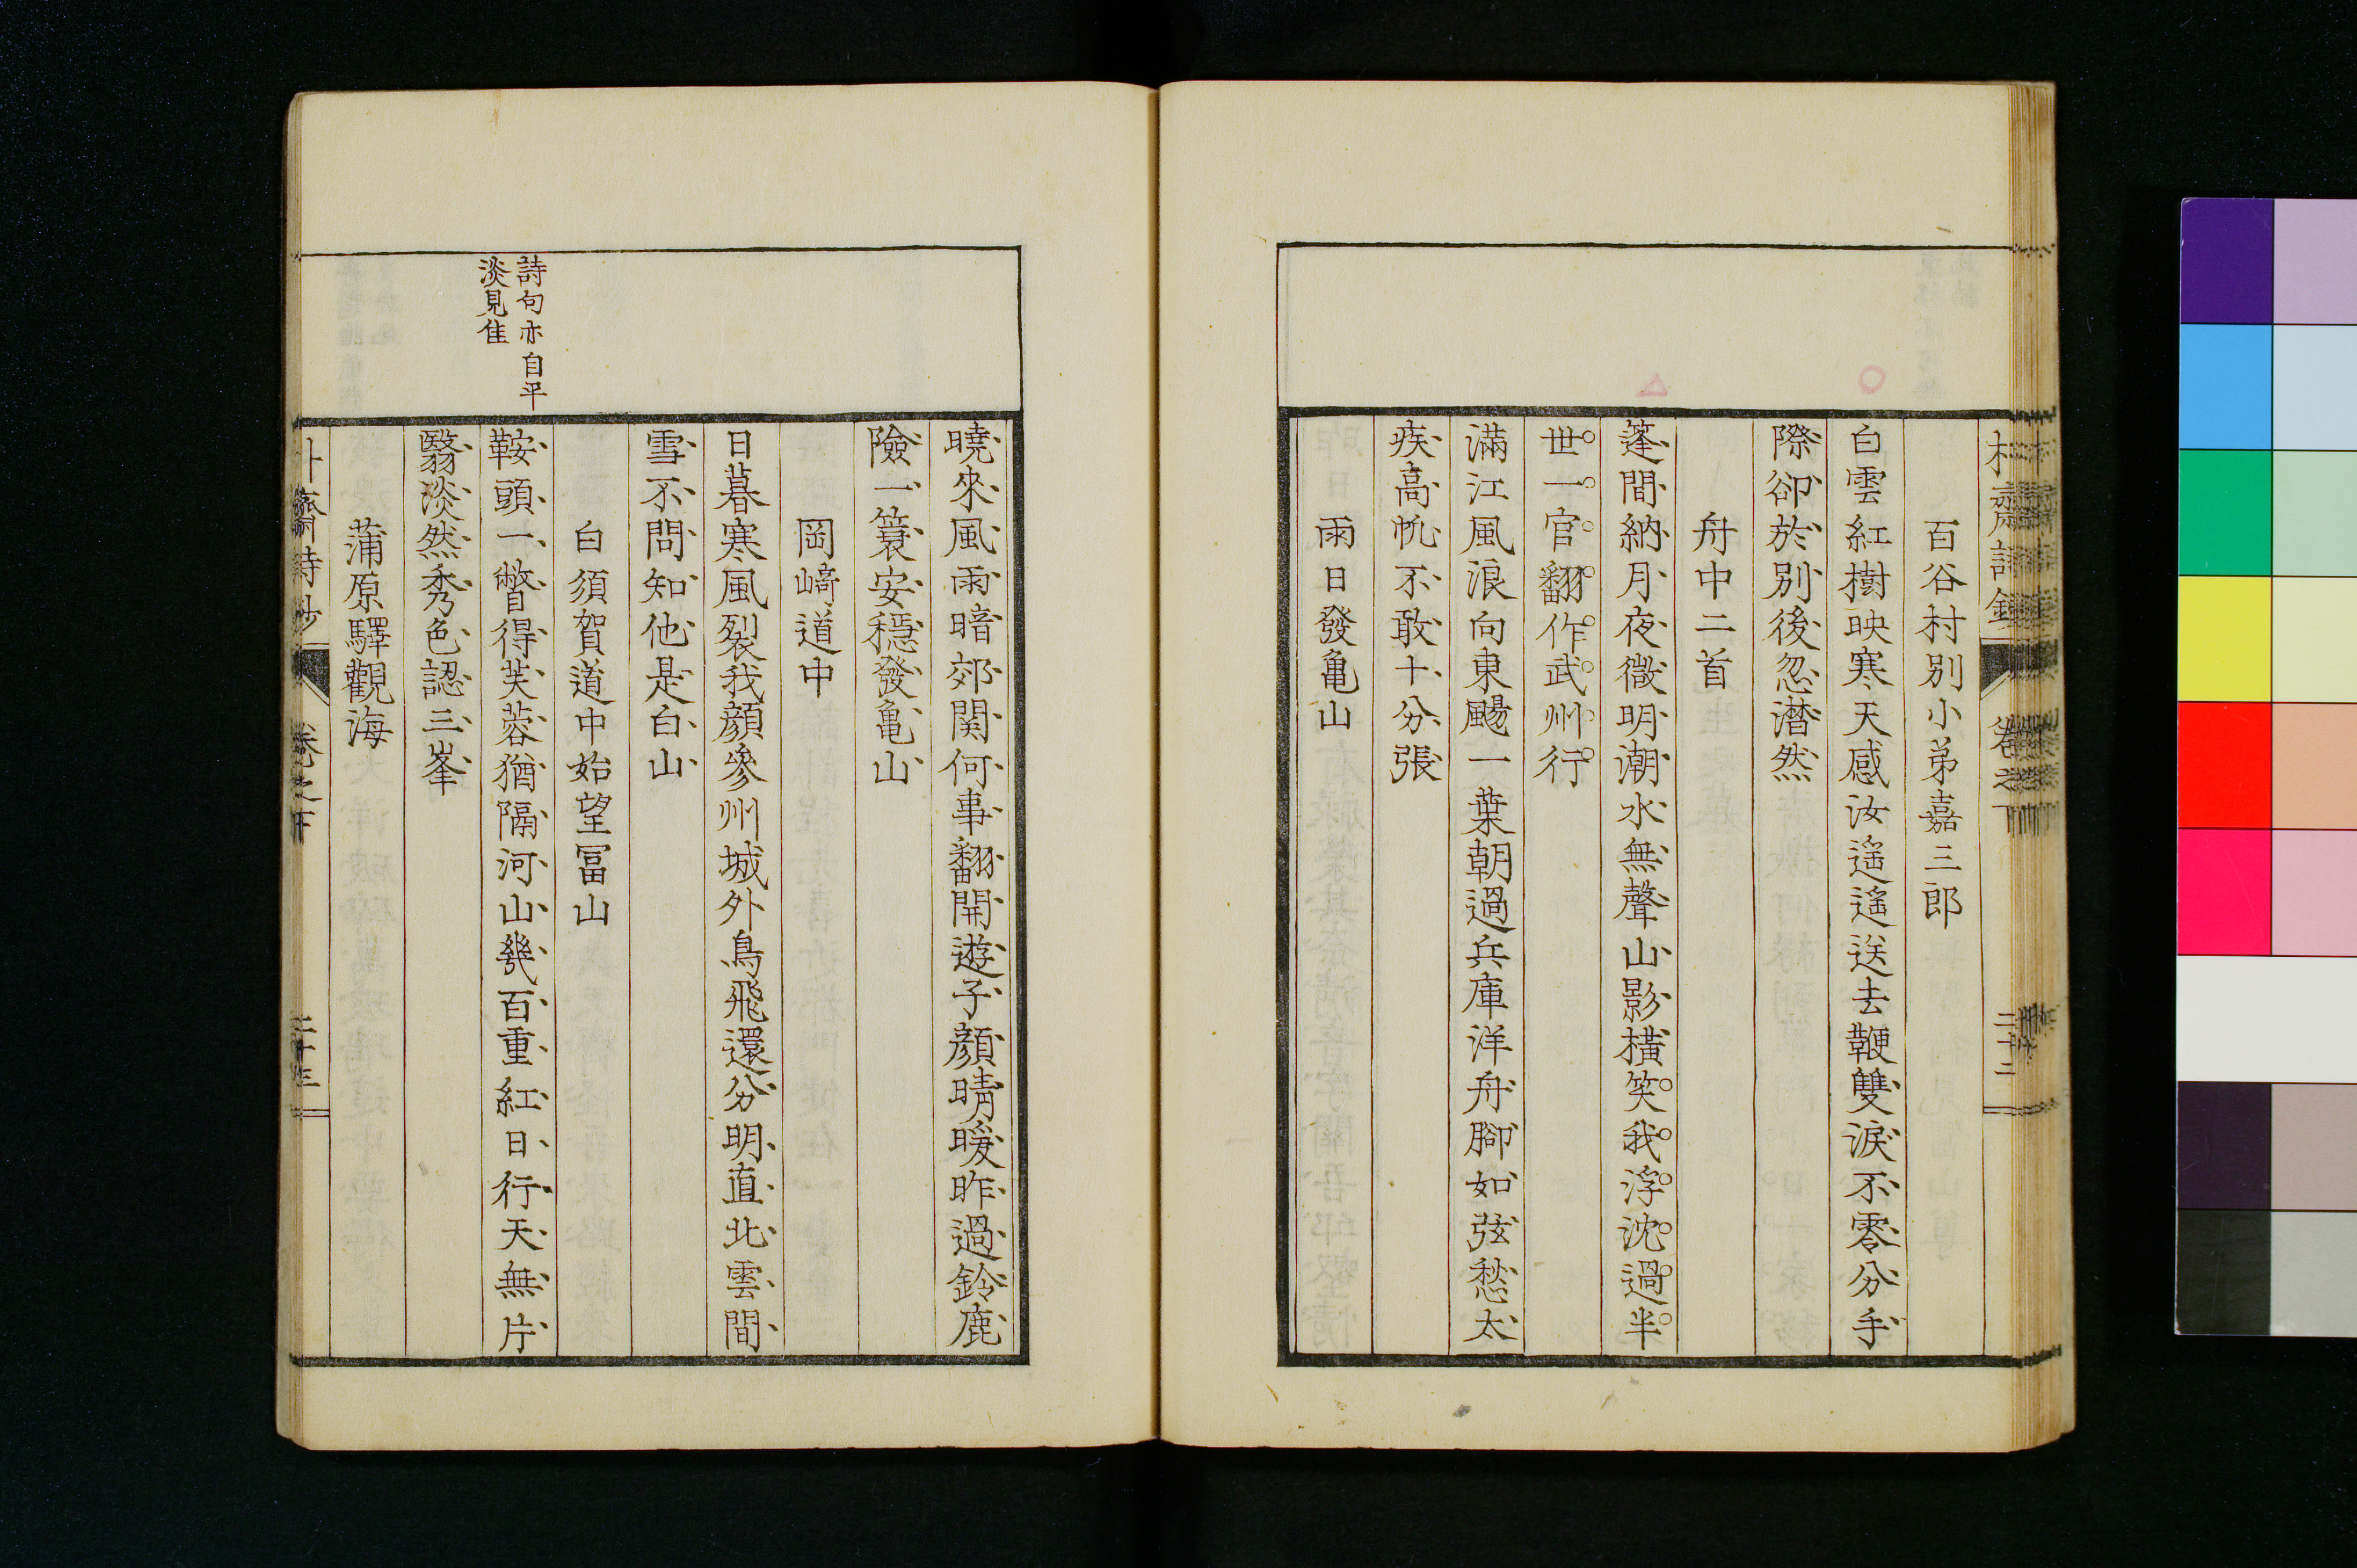 百谷村別小弟嘉三郎
白雲紅樹映寒天感汝遙遙送去鞭雙淚不零分手
際卻於別後忽潸然
舟中二首
篷間納月夜微明潮水無聲山影橫笑我浮沈過半
世一官翻作武州行
滿江風浪向東颺一葉朝過兵庫洋舟腳如弦愁太
疾高帆不敢十分張
雨日發亀山
卷之下
二十二
曉來風雨暗郊関何事翻開遊子顏晴暖昨過鈴鹿
險一簑安穩發亀山
岡﨑道中
日暮寒風裂我顏參州城外鳥飛還分明直北雲間
雪不問知他是白山
詩句亦自平
淡見佳
白須賀道中始望冨山
鞍頭一瞥得芙蓉猶隔河山幾百重紅日行天無片
翳淡然秀色認三峯
蒲原驛觀海
齋詩鈔
卷之下
二十三